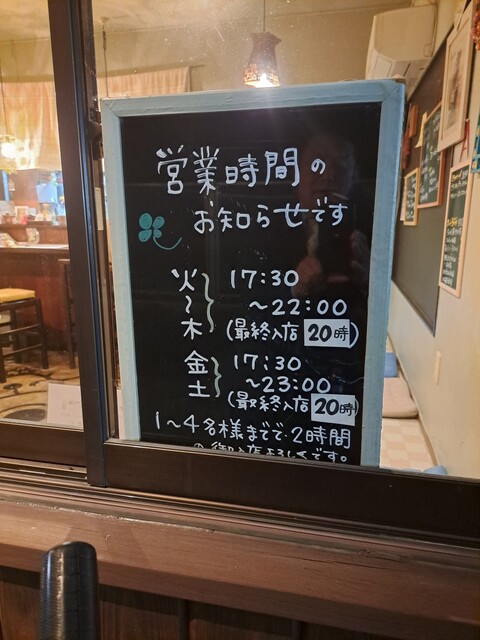 営業時間の
お知らせです
火～木 17:30
～22:00
(最終入店 20時)
金土 17:30
～23:00
(最終入店 20時)
1～4名様までで・2時間
の御入店よろしくです。